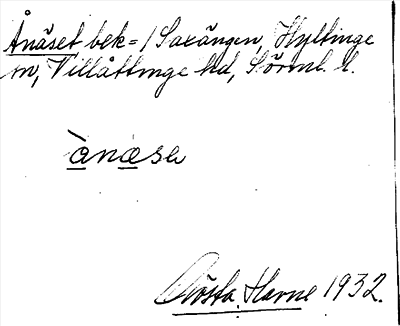 Ånäset bek = / Saxängen, Hyltinge
sn, Villåttinge hd, Sörml. l.
ànæsə
Gösta Harne 1932.